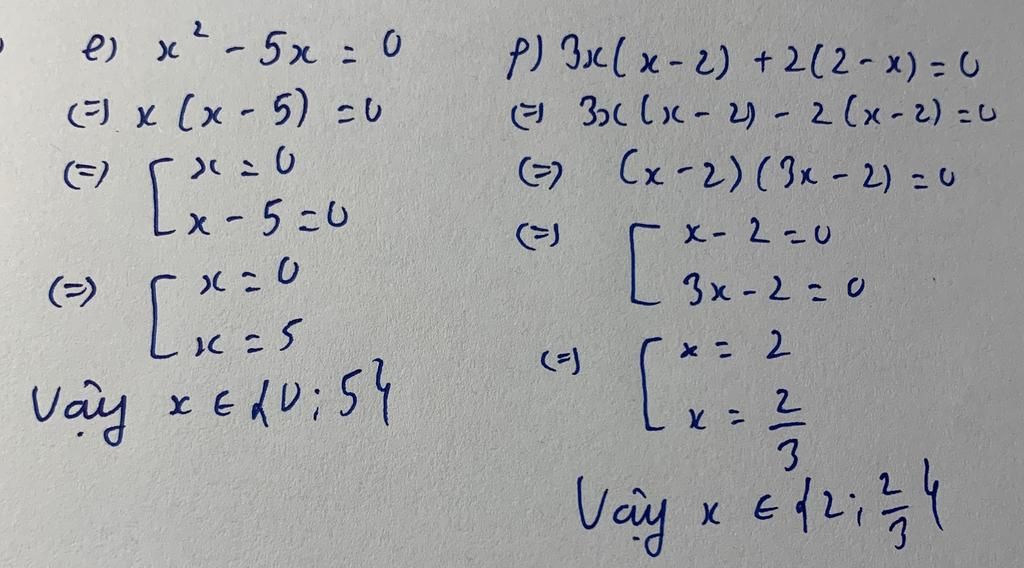 e) x² - 5x = 0
(=) x (x - 5) = 0
(=) [ x = 0
x - 5 = 0
(=) [ x = 0
x = 5
Vậy x ∈ {0; 5}
f) 3x(x - 2) + 2(2 - x) = 0
(=) 3x(x - 2) - 2(x - 2) = 0
(=) (x - 2)(3x - 2) = 0
(=) [ x - 2 = 0
3x - 2 = 0
(=) [ x = 2
x = 2/3
Vậy x ∈ {2; 2/3}